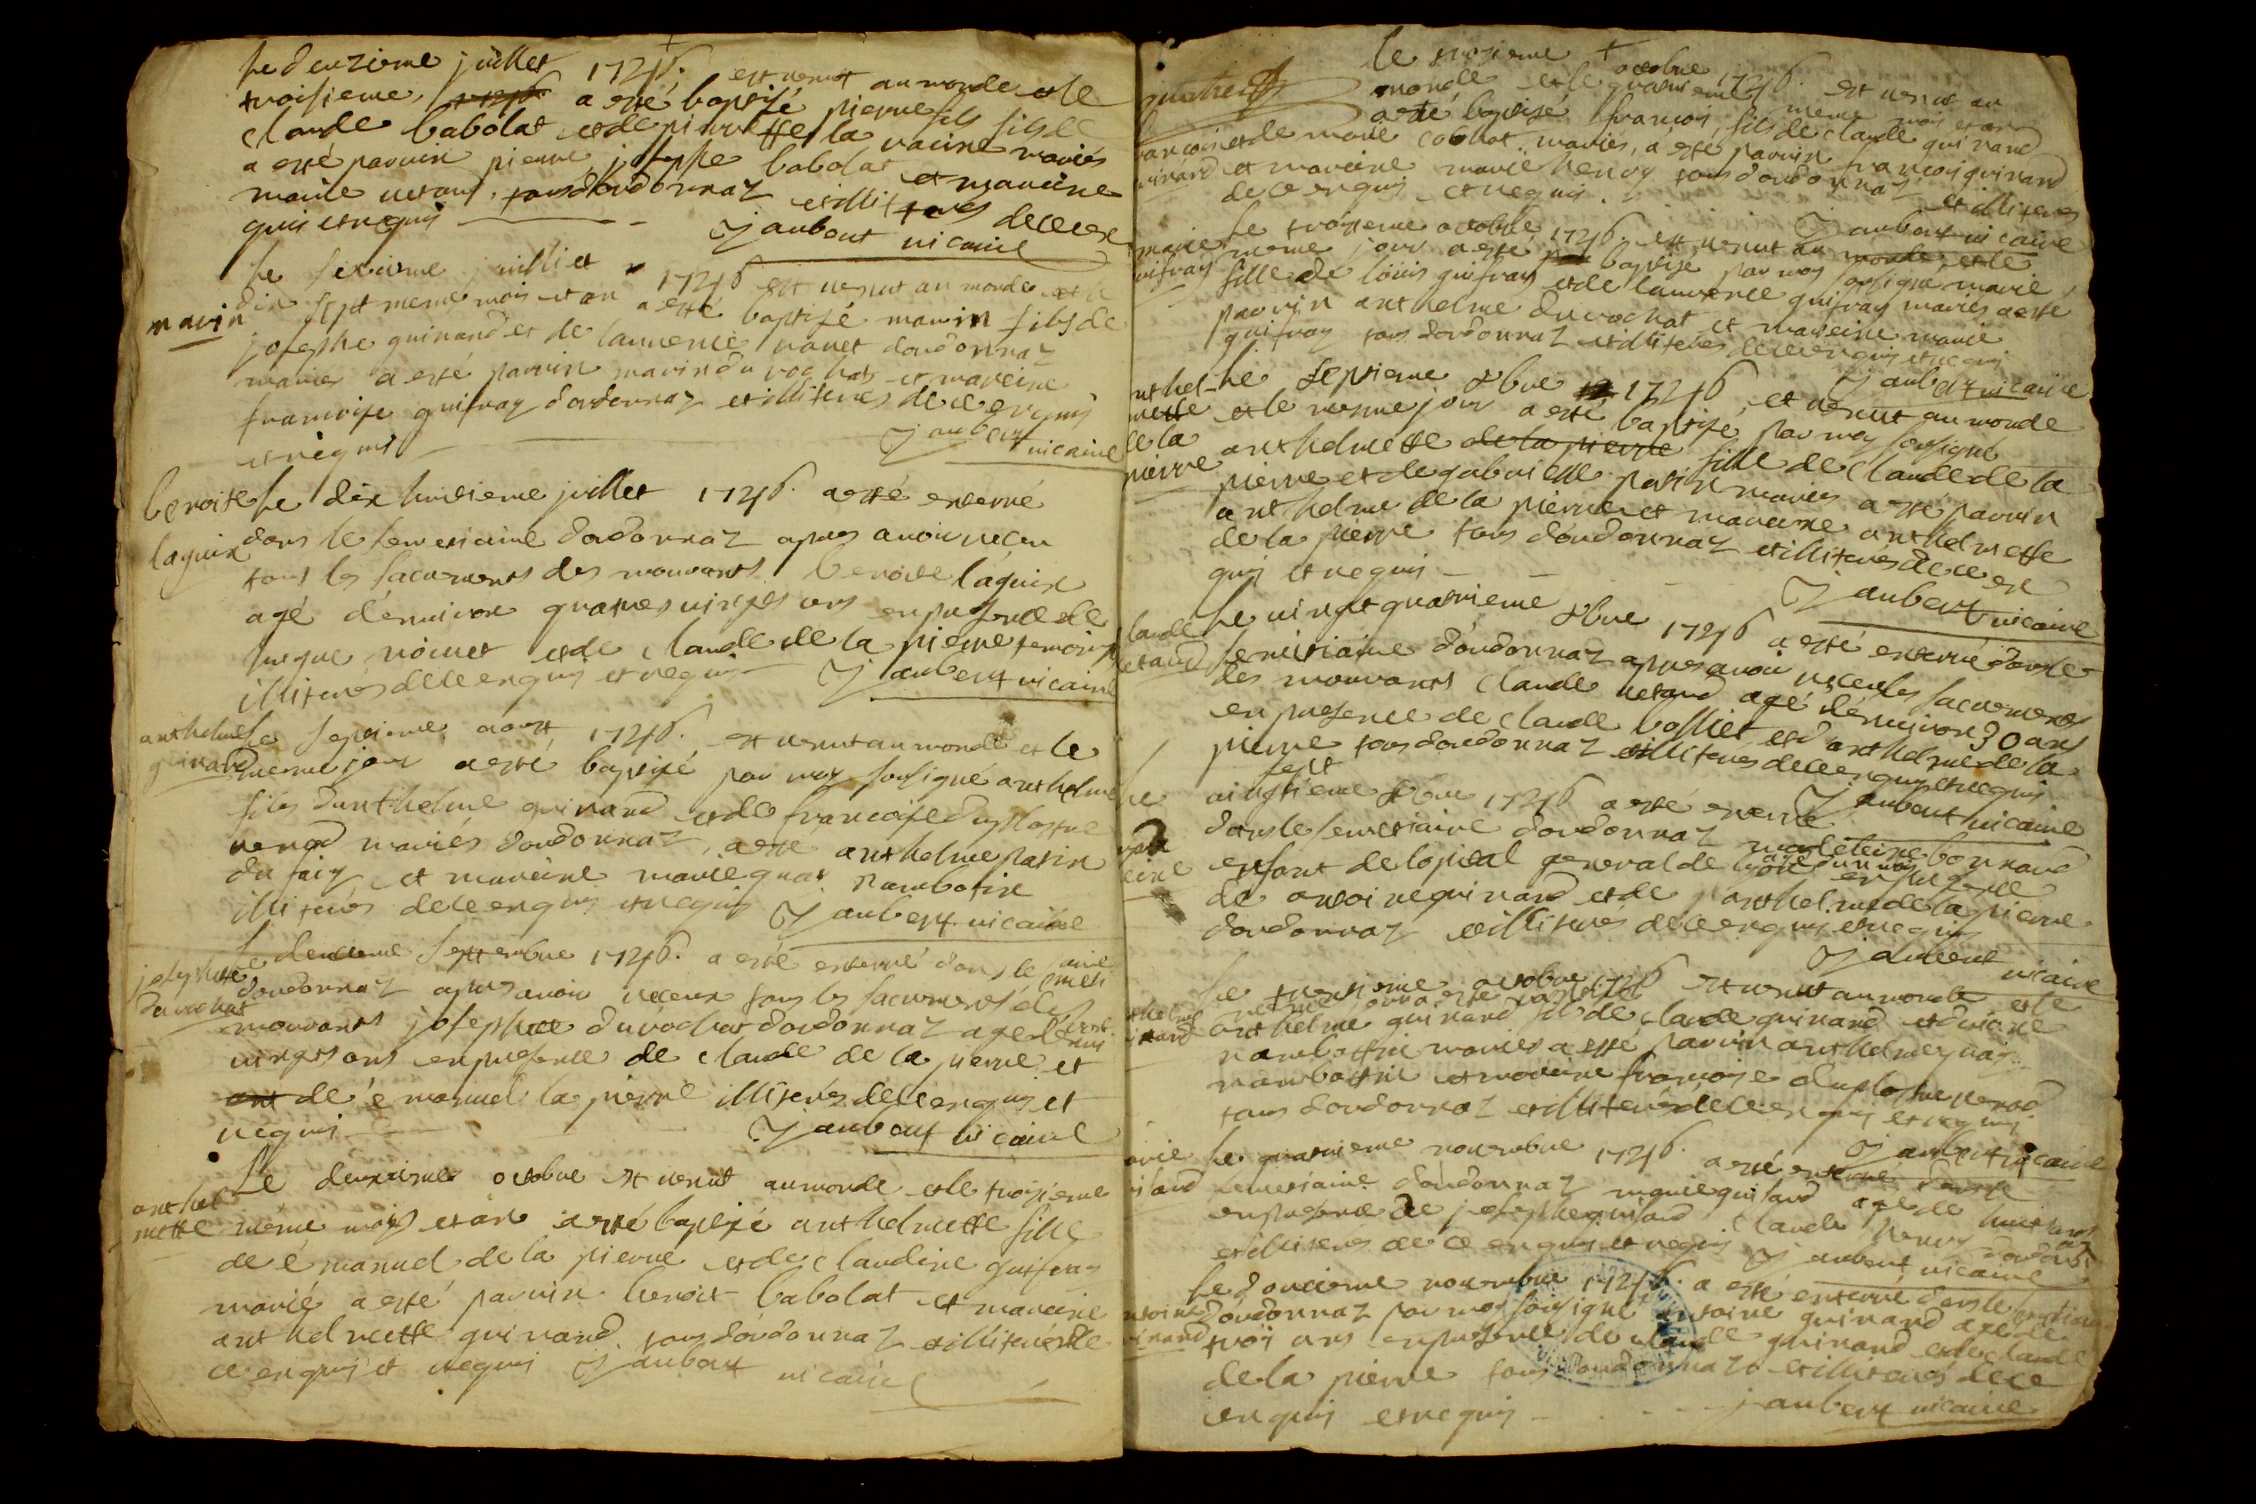 Le deuzieme juillet 1746. est venut au monde et le
troisieme, a esté baptisé pierre fils de
claude babolat et de pierrette la racine mariés
a esté parrin pierre josephe babolat et mareine
marie tous doudonnaz et illiteres de ce ex
quis et requis J aubert vicaire
Le seixieme juilliet 1746 est venut au monde et le
dix sept meme mois et an a esté baptisé marin fils de
marin
josephe guinand et de laurence doudonnaz
mariés a esté parrin marin du rochat et mareine
francoise guifray doudonnaz et illiteres de ce enquis
et requis J aubert vicaire
benoite Le dix huitieme juillet 1746. a esté enterré
laguin dans le semetiaire doudonnaz apres avoir receu
tous les sacrements des mourants benoite laguin
agé denviron quatres vingts ans en presence de
et de claude de la pierre temoins
illiterés de ce enquis et requis J aubert vicaire
anthelme Le septieme aoust 1746. est venut au monde et le
guinand meme jour a esté baptisé par moy sousigné anthelme
fils danthelme guinand et de francoise duplastre
mariés doudonnaz, a esté anthelme parin
du fair et mareine marie guay rambotin
illiterés de ce enquis et requis J aubert vicaire
Le deuxieme septembre 1746. a esté enterré dans le
josephette doudonnaz apres avoir receu tous les sacrements des
durochat mourants josephte durochat doudonnaz agee
vingts ans en presence de claude de la pierre et
de émanuel la pierre illiterés de ce enquis et
requis J aubert vicaire
Le deuxieme octobre est venut au monde et le troisieme
anthel
mette meme mois et an a esté baptisé anthelmette fille
de émanuel de la pierre et de claudine guifray
marié a esté parrin benoit babolat et mareine
anthelmette guinand tous doudonnaz et illiterés de
ce enquis et requis J aubert vicaire
le troisieme octobre 1746. est venut au
monde et le quatrieme meme mois et an
a esté baptisé francois, fils de claude guinand
francois et de marie cochat mariés, a esté parrin francois guinand
guinard et mareine marie henry tous doudonnaz et illiteres
de ce enquis et requis. J aubert vicaire
Le troisieme octobre 1746. est venut au monde, et le
marie meme jour a esté baptisé par moy sousigné marie,
guifray fille de louis guifray et de laurence guifray mariés a esté
parrin anthelme durochat et mareine marie
guifray tous doudonnaz et illiteres de ce enquis et requis
J aubert vicaire
anthel- Le septieme 8bre 1746 est venut au monde
mette et le meme jour a esté baptisé par moy sousigné
de la anthelmette de la pierre fille de claude de la
pierre pierre et de gabrielle parin mariés a esté parrin
anthelme de la pierre et mareine anthelmette
de la pierre tous doudonnaz et illiterés de ce ex
quis et requis J aubert vicaire
Le vingt quatrieme 8bre 1746 a esté enterré dans le
claude semitiaire doudonnaz apres avoir receu les sacrements
des mourants claude agé denviron 30 ans
en presence de claude bolliet et danthelme de la
pierre tous doudonnaz et illiterés de ce enquis et requis
J aubert vicaire
Le vingt sept ieme 8bre 1746 a esté enterré
dans le semetiaire doudonnaz madeleine bonnard
enfant de lopital general de lyon en presence
de antoine guinard et de panthelme de la pierre
doudonnaz et illiteres de ce enquis et requis
J aubert vicaire
Le trentieme octobre 1746 est venut au monde et le
anthelme anthelme guinand fils de claude guinand et
guinard rambottin mariés a esté parrin anthelme guay
rambottin et mareine francoise duplastre
tous doudonnaz et illiterés de ce enquis et requis
J aubert vicaire
marie Le quatrieme novembre 1746. a esté enterré dans le
semetiaire doudonnaz marie guiland agé de huit ans
en presence de josephe guiland claude henry doudonnaz
et illiteres de ce enquis et requis J aubert vicaire
Le douzieme novembre 1746. a esté enterré dans le
antoine doudonnaz par moy sousigné antoine guinand agé de
guinand troi ans en presence de claude guinand et de claude
de la pierre tous doudonnaz et illiterés de ce
enquis et requis J aubert vicaire